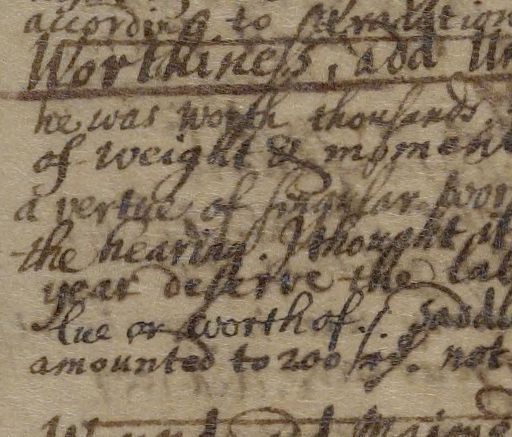 according to
Worthiness, add
he was worth thousands.
of weight & moment
a vertue of singular wor
the hearing. I thought it
year deserve the lab
lue or worth of.
amounted to 200 not
Wound